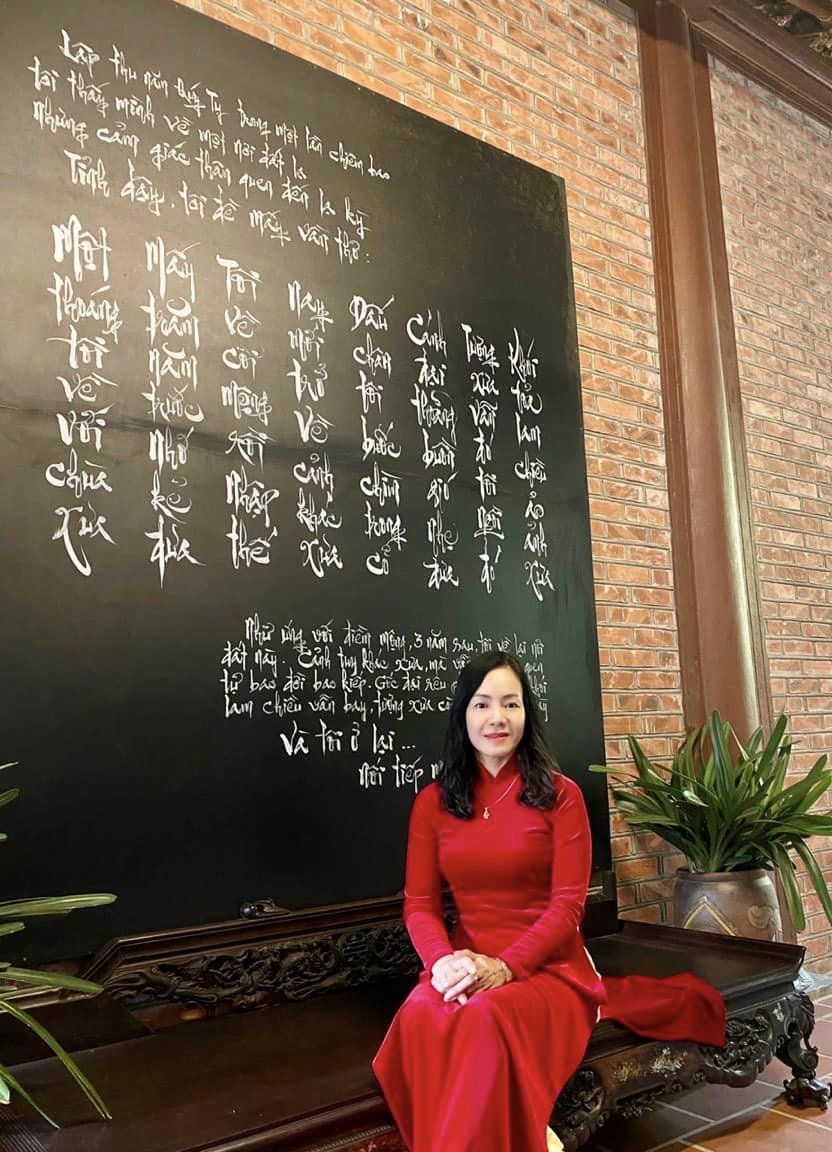 Lập thu năm Quý Tỵ trong một lần chiêm bao
tôi thấy mình về một nơi đất lạ
Nhưng cảm giác thân quen đến lạ kỳ
Tỉnh dậy, tôi đề mấy vần thơ :
Một thoáng tôi về với chùa xưa
Mấy trăm năm trước nhớ kẻ đưa
Tôi về cõi mộng rồi nhập thế
Nay mới trở về cảnh khác xưa
Dấu chân tôi bước chìm trong cỏ
Cánh đại thoảng buồn gió nhẹ đưa
Tượng xưa vẫn đó tôi nơi đó
Khói tỏa lam chiều ảo ảnh xưa
Như ứng với điềm mộng, 3 năm sau, tôi về lại nơi
đất này. Cảnh tuy khác xưa, mà vẫn quen
tự bao đời bao kiếp. Gốc đại rêu khói
lam chiều vẫn bay, tượng xưa
Và tôi ở lại ...
nối tiếp